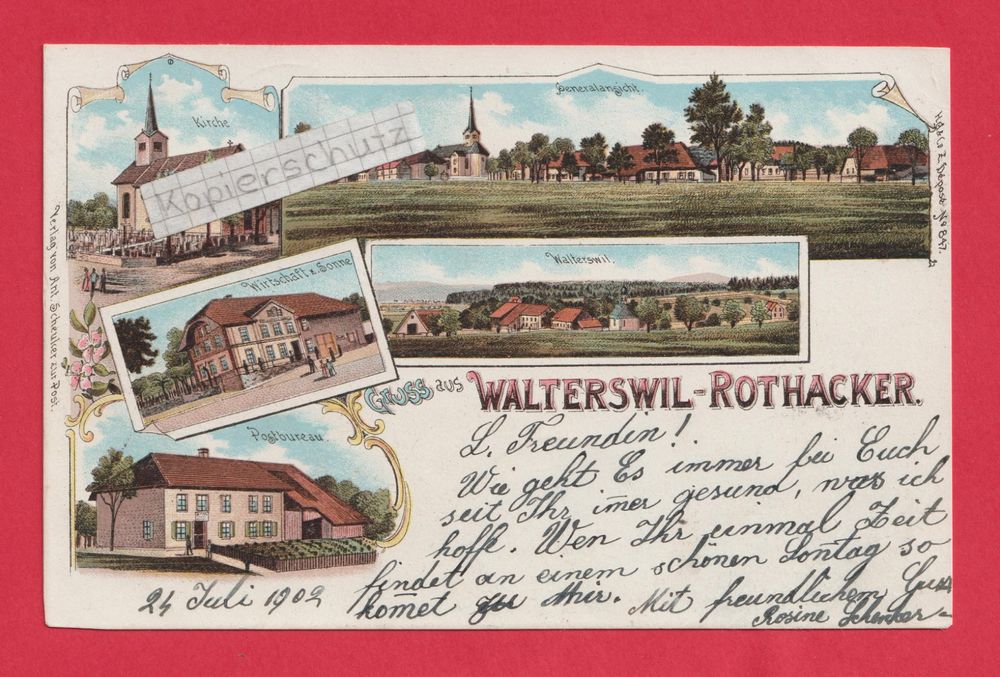 Kirche
Generalansicht.
Kopierschutz
Walterswil.
Wirtschaft z. Sonne
Postbureau.
Gruss aus WALTERSWIL-ROTHACKER.
Verlag von Ant. Schenker zur Post.
H.G.&Co Z. Dépose № 847.
L. Freundin!
Wie geht Es immer bei Euch
seit Ihr im̅er gesund, was ich
hoffe. Wen Ihr einmal Zeit
findet an einem schönen Sontag so
kom̅et zu Mir. Mit freundlichem Gruss
Rosine Schenker
24 Juli 1902